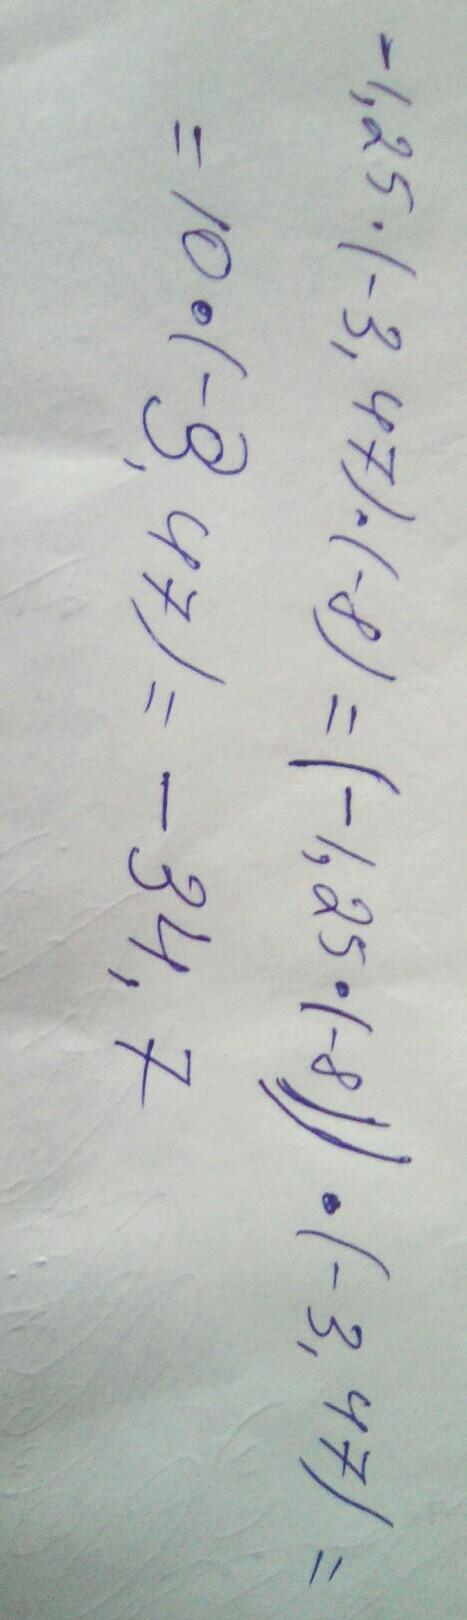 -1,25·(-3,47)·(-8)=(-1,25·(-8))·(-3,47)=
=10·(-3,47)=-34,7